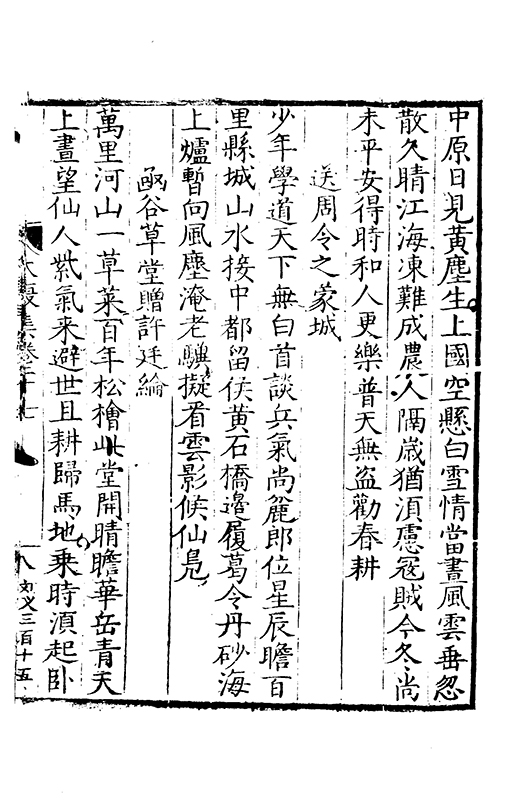 中原日見黃塵生上國空懸白雪情當晝風雲垂忽
散久晴江海凍難成農人隔歲猶湏慮冦賊今冬尚
未平安得時和人更樂普天無盜勸春耕
送周令之蒙城
少年學道天下無白首談兵氣尚麄郎位星辰瞻百
里縣城山水接中都留侯黃石橋邊履葛令丹砂海
上爐暫向風塵淹老驥擬看雲影候仙凫
凾谷草堂贈許廷綸
萬里河山一草萊百年松檜此堂開晴瞻華岳青天
上晝望仙人紫氣来避世且耕歸馬地乗時湏起卧
集卷二十七
八
文义三百十五